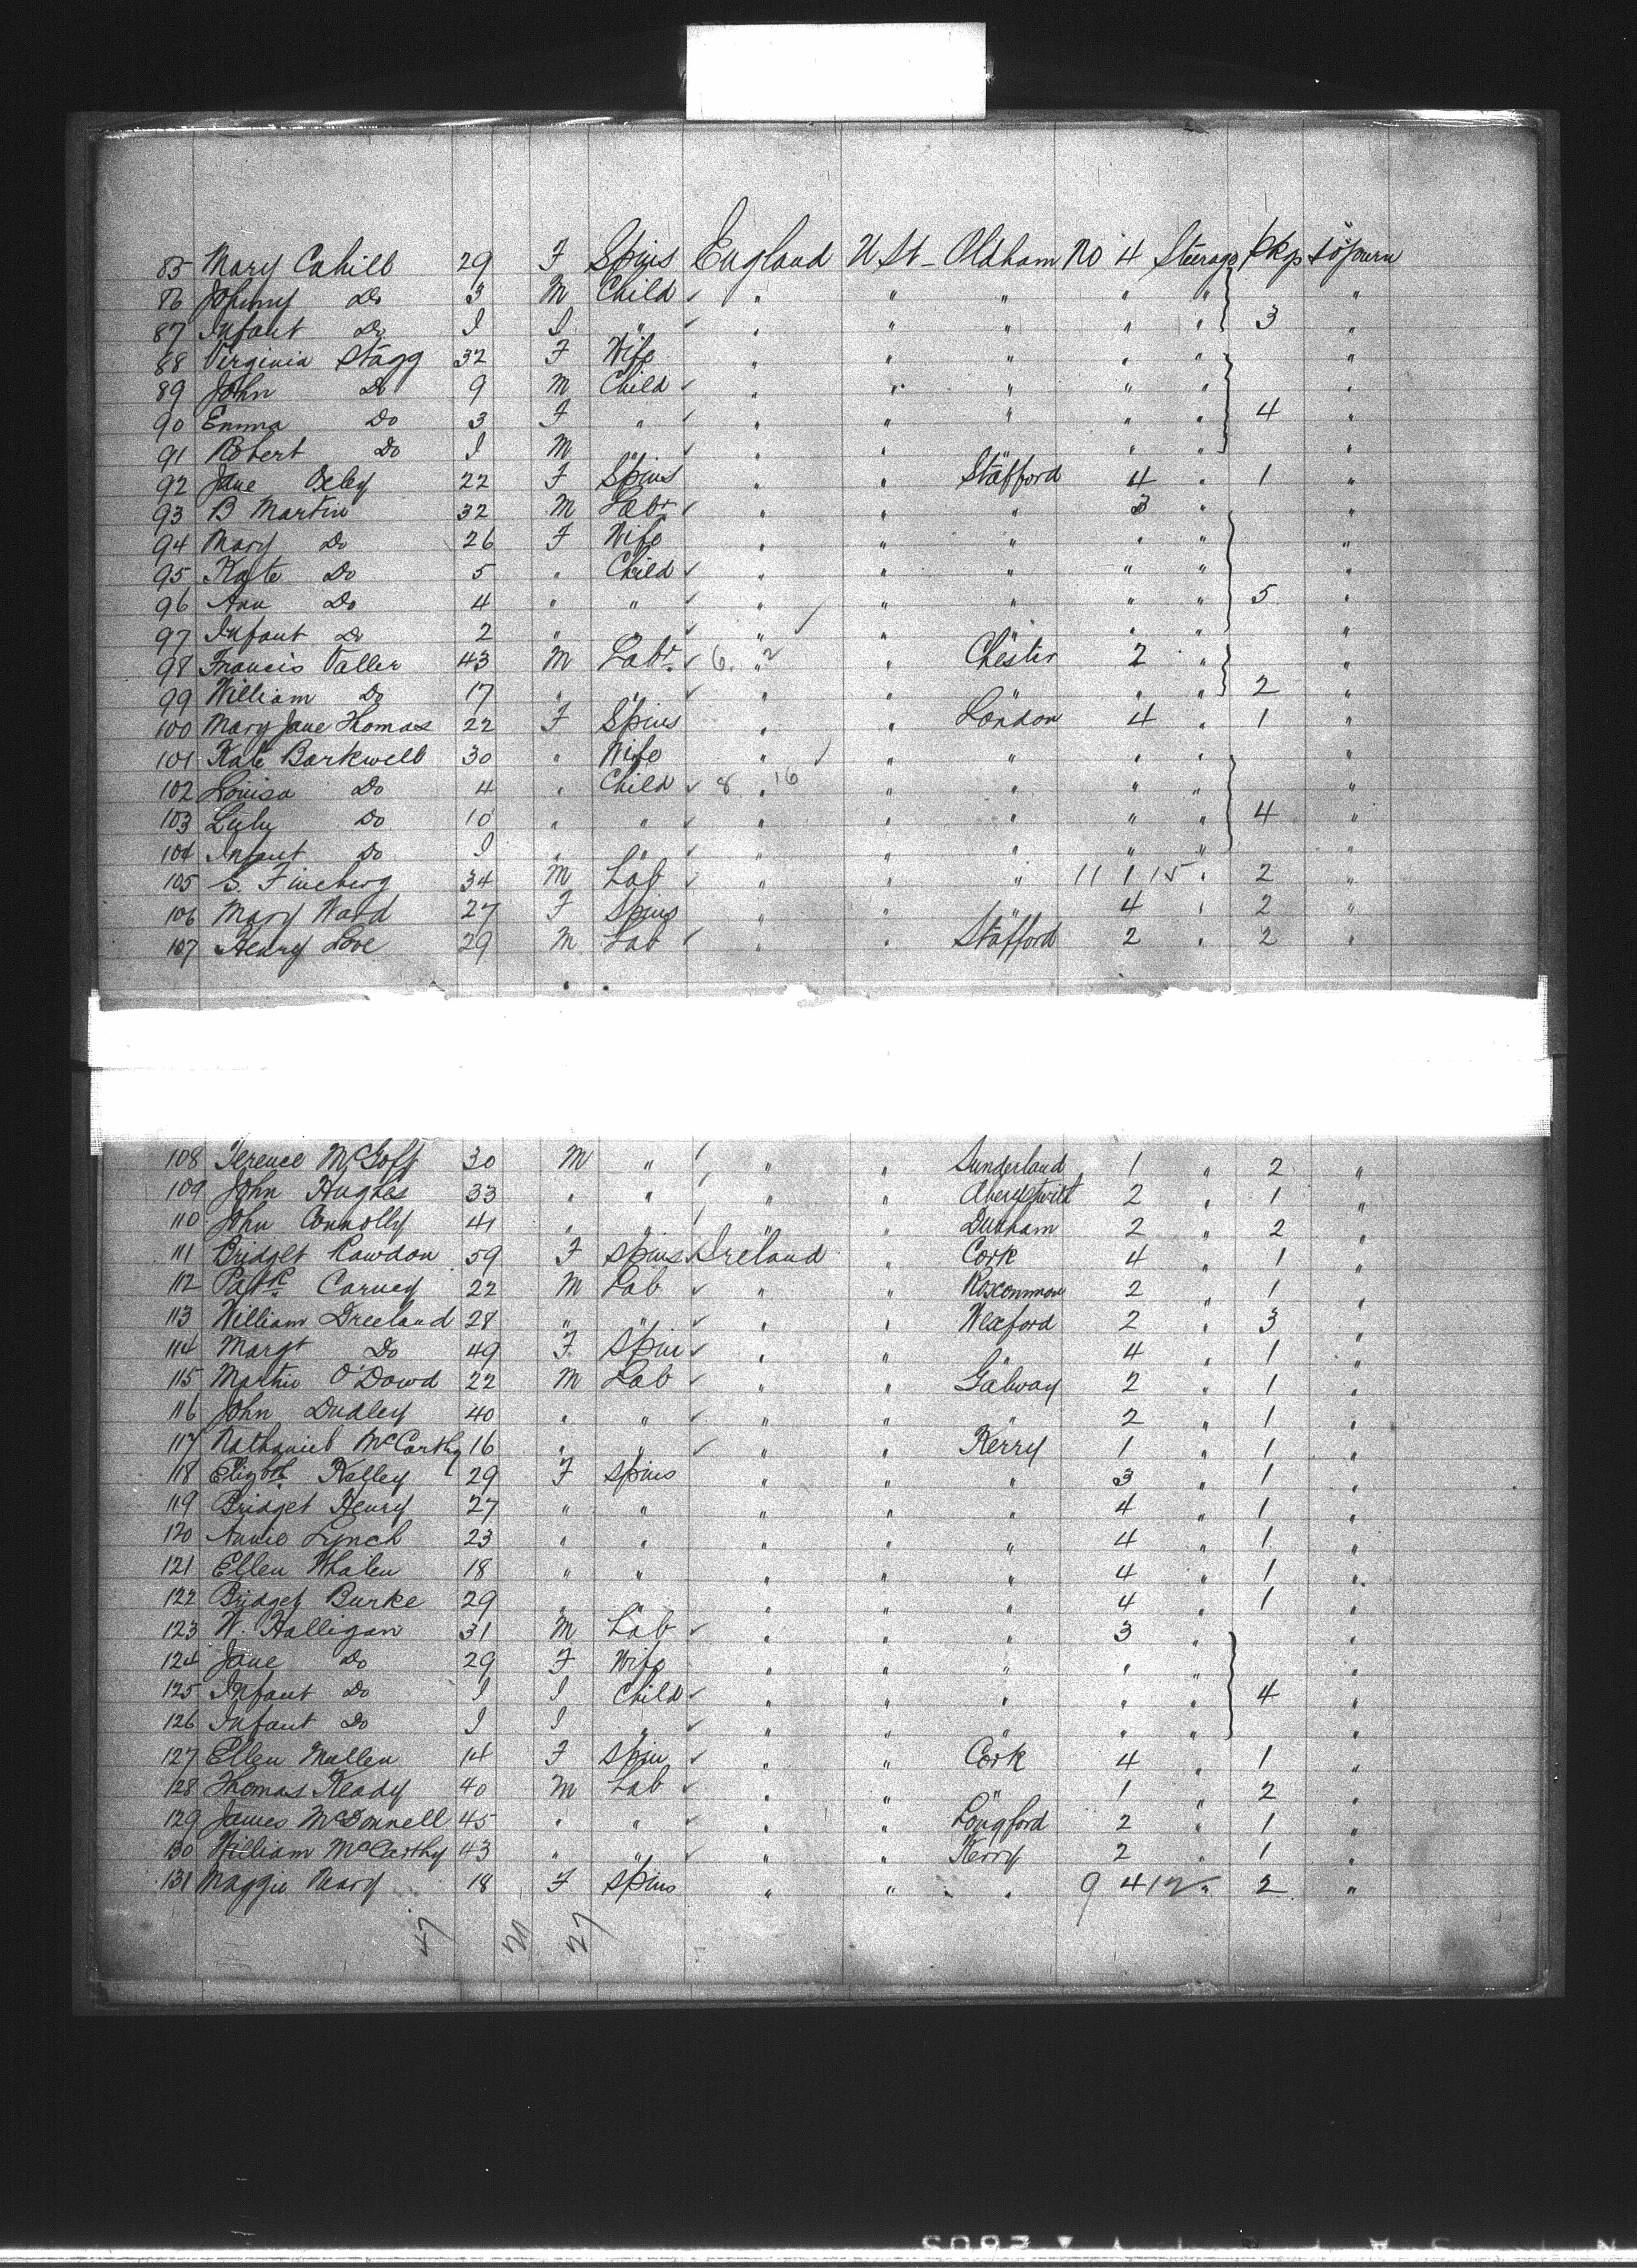 85 Mary Cahill 29 F Spins England U St - Oldham No 4 Steerage pkgs sojourn
86 Johnny Do 3 M Child ✓ " " " " " "
87 Infant Do I I " ✓ " " " " " 3 "
88 Virginia Stagg 32 F Wife " " " " " "
89 John Do 9 M Child ✓ " " " " " "
90 Emma Do 3 F " ✓ " " " " " 4 "
91 Robert Do I M " ✓ " " " " " "
92 Jane Oxley 22 F Spins " " Stafford 4 " 1 "
93 B Martin 32 M Labr ✓ " " " 3 " "
94 Mary Do 26 F Wife " " " " " "
95 Kate Do 5 " Child ✓ " " " " " "
96 Ann Do 4 " " ✓ " " " " " 5 "
97 Infant Do 2 " " ✓ " " " " " "
98 Francis Valler 43 M Labr ✓ 6 " 2 " Chester 2 " "
99 William Do 17 " " ✓ " " " " " 2 "
100 Mary Jane Thomas 22 F Spins " " London 4 " 1 "
101 Kate Barkwell 30 " Wife " " " " " "
102 Louisa Do 4 " Child ✓ 8 " 16 " " " " "
103 Luly Do 10 " " ✓ " " " " " 4 "
104 Infant Do I " " ✓ " " " " " "
105 S. Fineberg 34 M Lab ✓ " " " 11 1 15 " 2 "
106 Mary Ward 27 F Spins " " " 4 " 2 "
107 Henry Love 29 M Lab ✓ " " Stafford 2 " 2 "
108 Terence McGoff 30 M " " " Sunderland 1 " 2 "
109 John Hughes 33 " " " " Aberystwith 2 " 1 "
110 John Connolly 41 " " " " Durham 2 " 2 "
111 Bridget Rawdon 59 F Spins Ireland " Cork 4 " 1 "
112 Patk Carney 22 M Lab ✓ " " Roscommon 2 " 1 "
113 William Dreeland 28 " " ✓ " " Wexford 2 " 3 "
114 Margt Do 49 F Spin ✓ " " " 4 " 1 "
115 Mathw O'Dowd 22 M Lab ✓ " " Galway 2 " 1 "
116 John Dudley 40 " " ✓ " " " 2 " 1 "
117 Nathaniel McCarthy 16 " " ✓ " " Kerry 1 " 1 "
118 Elizbth Kelley 29 F Spins " " " 3 " 1 "
119 Bridget Henry 27 " " " " " 4 " 1 "
120 Annie Lynch 23 " " " " " 4 " 1 "
121 Ellen Whalen 18 " " " " " 4 " 1 "
122 Bridget Burke 29 " " " " " 4 " 1 "
123 W. Halligan 31 M Lab ✓ " " " 3 " "
124 Jane Do 29 F Wife " " " " " "
125 Infant Do I I Child ✓ " " " " " 4 "
126 Infant Do I I " ✓ " " " " " "
127 Ellen Mullen 14 F Spin ✓ " " Cork 4 " 1 "
128 Thomas Keady 40 M Lab ✓ " " " 1 " 2 "
129 James McDonnell 45 " " ✓ " " Longford 2 " 1 "
130 William McCarthy 43 " " ✓ " " Kerry 2 " 1 "
131 Maggie Neary 18 F Spins " " " 9 4 12 " 2 "
47 20 27